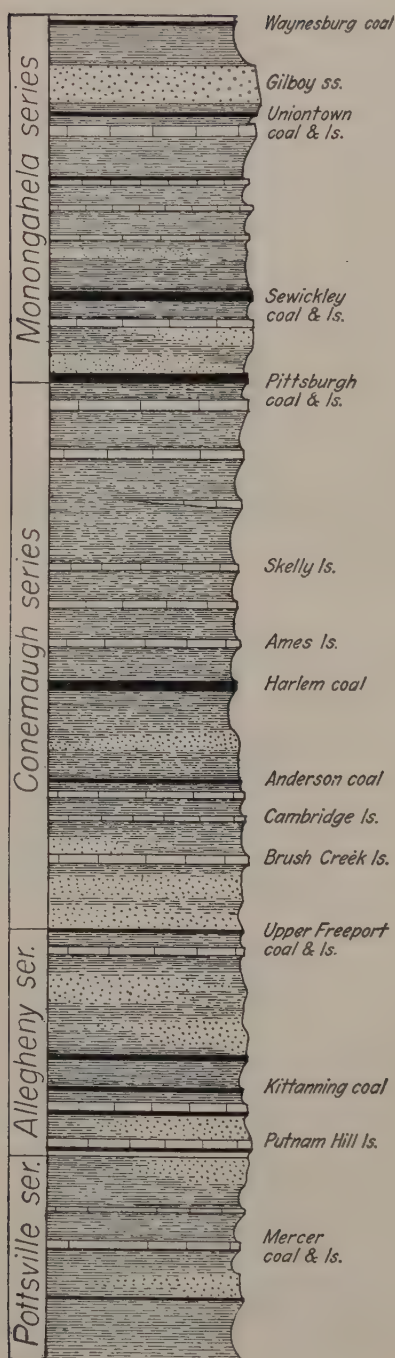 Monongahela series
Conemaugh series
Allegheny ser.
Pottsville ser.
Waynesburg coal
Gilboy ss.
Uniontown
coal & ls.
Sewickley
coal & ls.
Pittsburgh
coal & ls.
Skelly ls.
Ames ls.
Harlem coal
Anderson coal
Cambridge ls.
Brush Creek ls.
Upper Freeport
coal & ls.
Kittanning coal
Putnam Hill ls.
Mercer
coal & ls.